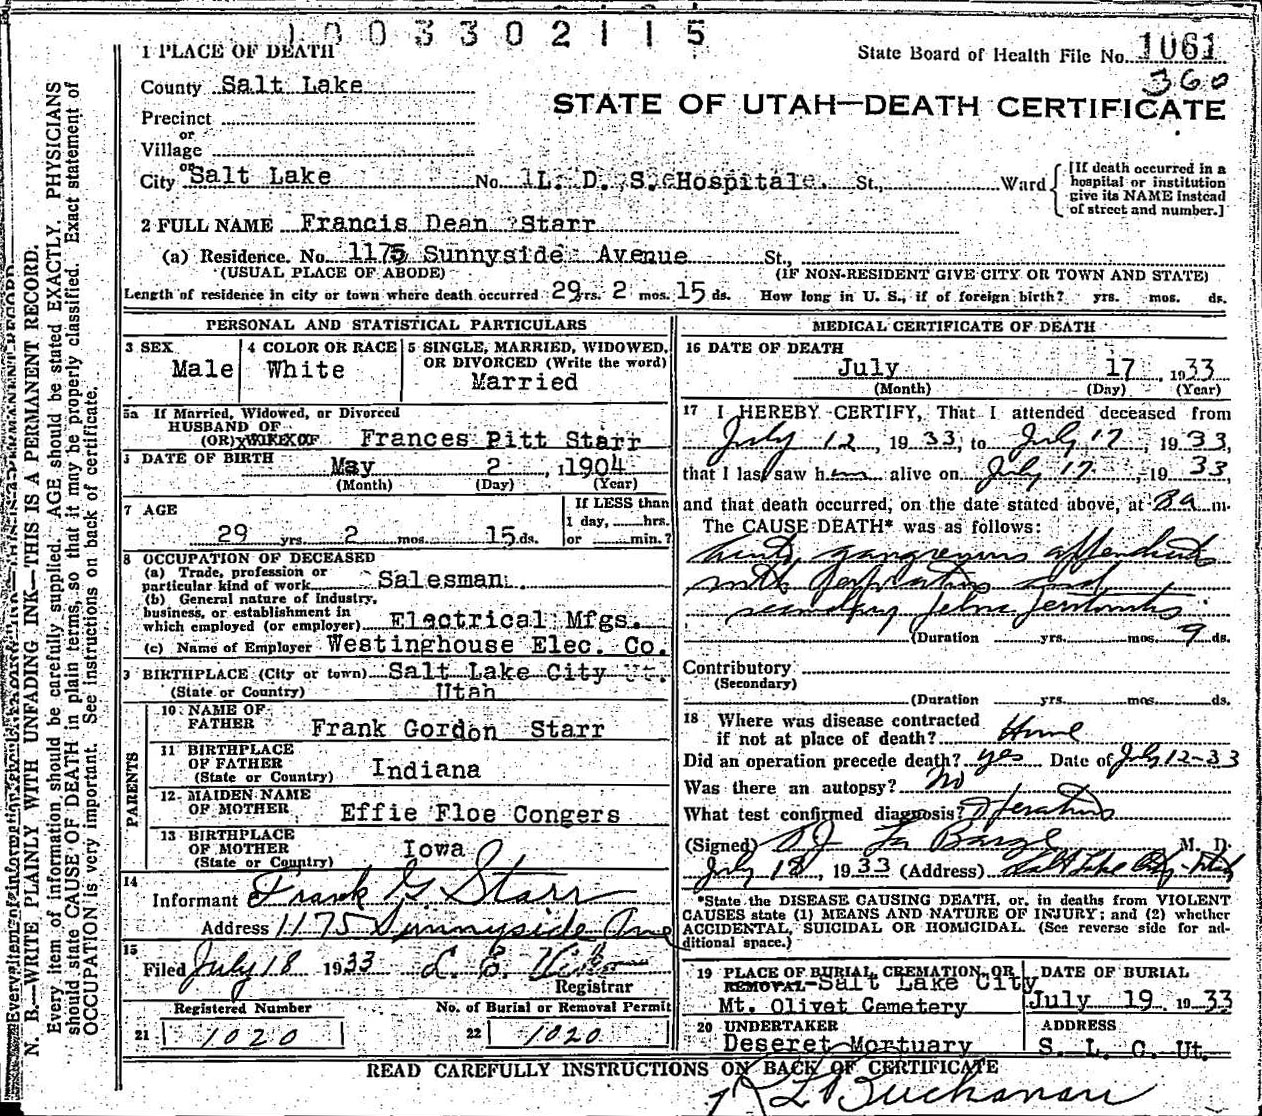 1003302115
1 PLACE OF DEATH
State Board of Health File No. 1061
360
County Salt Lake
STATE OF UTAH—DEATH CERTIFICATE
Precinct
or
Village
or
City Salt Lake No. L. D. S. Hospital. St., Ward
[If death occurred in a
hospital or institution
give its NAME instead
of street and number.]
2 FULL NAME Francis Dean Starr
(a) Residence. No. 1175 Sunnyside Avenue St.,
(USUAL PLACE OF ABODE) (IF NON-RESIDENT GIVE CITY OR TOWN AND STATE)
Length of residence in city or town where death occurred 29 yrs. 2 mos. 15 ds. How long in U. S., if of foreign birth? yrs. mos. ds.
PERSONAL AND STATISTICAL PARTICULARS
3 SEX
Male
4 COLOR OR RACE
White
5 SINGLE, MARRIED, WIDOWED,
OR DIVORCED (Write the word)
Married
5a If Married, Widowed, or Divorced
HUSBAND OF
(OR) WIFE OF Frances Pitt Starr
DATE OF BIRTH
May 2, 1904
(Month) (Day) (Year)
7 AGE
29 yrs. 2 mos. 15 ds.
If LESS than
1 day, hrs.
or min.?
8 OCCUPATION OF DECEASED
(a) Trade, profession or
particular kind of work Salesman
(b) General nature of Industry,
business, or establishment in
which employed (or employer) Electrical Mfgs.
(c) Name of Employer Westinghouse Elec. Co.
9 BIRTHPLACE (City or town) Salt Lake City Ut.
(State or Country) Utah
PARENTS
10 NAME OF
FATHER Frank Gordon Starr
11 BIRTHPLACE
OF FATHER
(State or Country) Indiana
12 MAIDEN NAME
OF MOTHER Effie Floe Congers
13 BIRTHPLACE
OF MOTHER
(State or Country) Iowa
14
Informant Frank G. Starr
Address 1175 Sunnyside Ave
15
Filed July 18 1933 L. E.
Registrar
Registered Number No. of Burial or Removal Permit
21 1020 22 1020
MEDICAL CERTIFICATE OF DEATH
16 DATE OF DEATH
July 17, 1933
(Month) (Day) (Year)
17 I HEREBY CERTIFY, That I attended deceased from
July 12, 1933, to July 17, 1933,
that I last saw him alive on July 17, 1933
and that death occurred, on the date stated above, at 8a m.
The CAUSE DEATH* was as follows:
acute gangrenous appendicitis
with perforation and
secondary pelvic peritonitis
(Duration yrs. mos. 9 ds.
Contributory
(Secondary)
(Duration yrs. mos. ds.
18 Where was disease contracted
if not at place of death? Home
Did an operation precede death? yes Date of July 12-33
Was there an autopsy? No
What test confirmed diagnosis? Operation
(Signed) La Barge M. D.
July 18, 1933 (Address) Salt Lake City - Utah
*State the DISEASE CAUSING DEATH, or, in deaths from VIOLENT
CAUSES state (1) MEANS AND NATURE OF INJURY; and (2) whether
ACCIDENTAL, SUICIDAL OR HOMICIDAL. (See reverse side for ad-
ditional space.)
19 PLACE OF BURIAL, CREMATION, OR
REMOVAL Salt Lake City
Mt. Olivet Cemetery
DATE OF BURIAL
July 19 1933
20 UNDERTAKER
Deseret Mortuary
ADDRESS
S. L. C. Ut.
READ CAREFULLY INSTRUCTIONS ON BACK OF CERTIFICATE
Buchanan
N. B.—WRITE PLAINLY WITH UNFADING INK—THIS IS A PERMANENT RECORD.
Every item of information should be carefully supplied. AGE should be stated EXACTLY. PHYSICIANS
should state CAUSE OF DEATH in plain terms, so that it may be properly classified. Exact statement of
OCCUPATION is very important. See instructions on back of certificate.